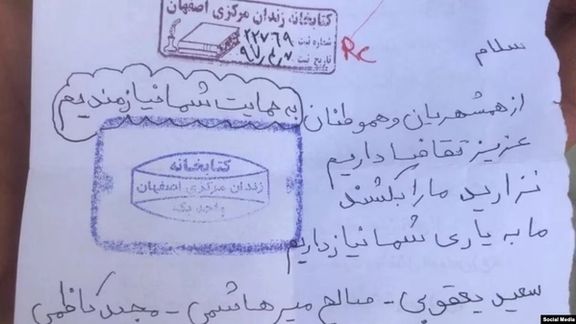 کتابخانه زندان مرکزی اصفهان
شماره ثبت ۲۲۷۶۹
تاریخ ثبت ۹۷,۴,۷
Rc
سلام
از همشهریان و هموطنان به حمایت شما نیازمندیم
عزیز تقاضا داریم
نزارید ما را بکشند
ما به یاری شما نیاز داریم
کتابخانه
زندان مرکزی اصفهان
واحد یک
سعید یعقوبی - صالح میرهاشمی - مجید کاظمی
Social Media